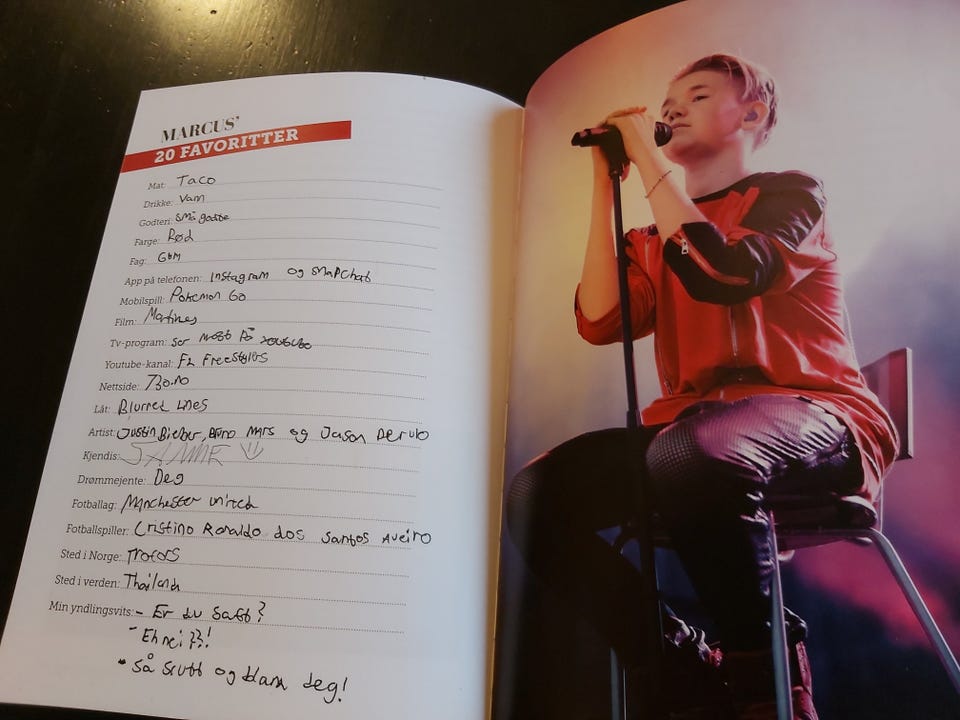 MARCUS'
20 FAVORITTER
Mat: Taco
Drikke: Vann
Godteri: små godte
Farge: Rød
Fag: Gym
App på telefonen: Instagram og snapchat
Mobilspill: Pokemon Go
Film: Martines
Tv-program: ser mest på youtube
Youtube-kanal: F2 Freestylers
Nettside: 730.no
Låt: Blurred lines
Artist: Justin Bieber, Bruno Mars og Jason Derulo
Kjendis: SAMME
Drømmejente: Deg
Fotballag: Manchester united
Fotballspiller: Cristino Ronaldo dos Santos Aveiro
Sted i Norge: Trofors
Sted i verden: Thailand
Min yndlingsvits: - Er du saft?
- Eh nei??!
• Så slutt og bland deg!